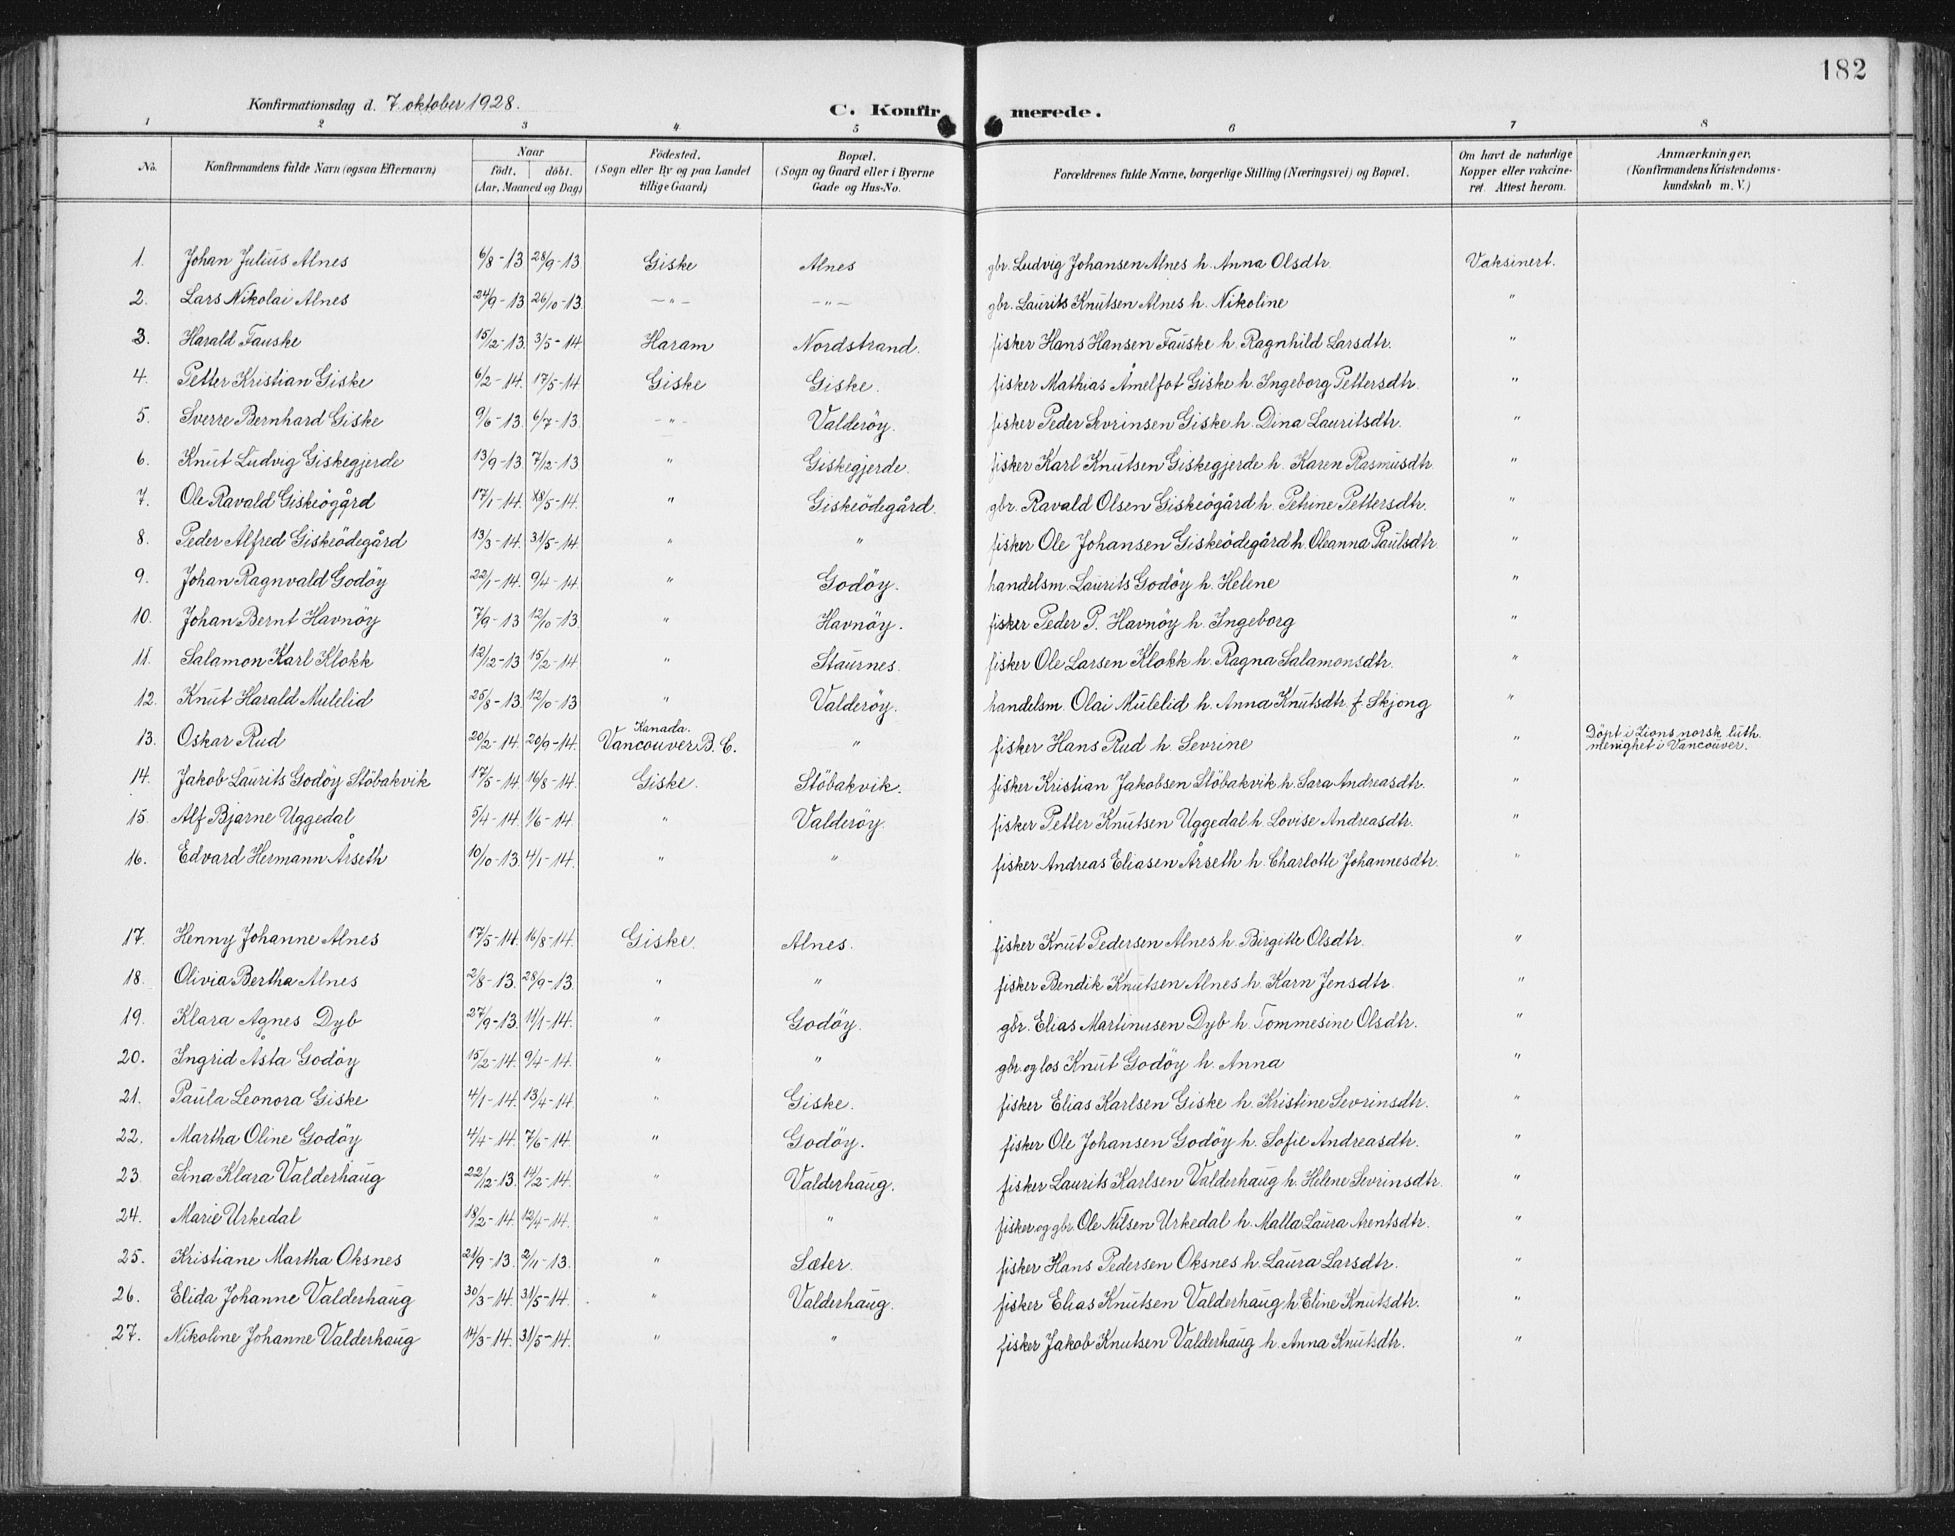 182
Konfirmationsdag d. 7 oktober 1928.
C. Konfirmerede.
1 2 3 4 5 6 7 8
No. Konfirmandens fulde Navn (ogsaa Efternavn) Naar født. døbt. (Aar, Maaned og Dag) Fødested. (Sogn eller By og paa Landet tillige Gaard) Bopæl. (Sogn og Gaard eller i Byerne Gade og Hus-No. Forældrenes fulde Navne, borgerlige Stilling (Næringsvei) og Bopæl. Om havt de naturlige Kopper eller vakcineret. Attest herom. Anmærkninger. (Konfirmandens Kristendomskundskab m. V.)
1. Johan Julius Alnes 6/8-13 28/9-13 Giske Alnes gbr. Ludvig Johansen Alnes h. Anna Olsdtr. Vaksinert.
2. Lars Nikolai Alnes 24/9-13 26/10-13 -"- -"- gbr. Laurits Knutsen Alnes h. Nikoline "
3. Harald Fauske 15/12-13. 3/5-14. Haram Nordstrand. fisker Hans Hansen Fauske h. Ragnhild Larsdtr. "
4. Petter Kristian Giske 6/2-14. 17/5-14 Giske Giske. fisker Mathias Åmelfot Giske h. Ingeborg Pettersdtr. "
5. Sverre Bernhard Giske 9/6-13 6/7-13 -"- Valderöy. fisker Peder Sevrinsen Giske h. Dina Lauritsdtr. "
6. Knut Ludvig Giskegjerde 13/9-13 7/12-13 " Giskegjerde. fisker Karl Knutsen Giskegjerde h. Karen Rasmusdtr. "
7. Ole Ravald Giskeögård 17/1-14. 18/5-14. " Giskeödegård. gbr. Ravald Olsen Giskeögård h. Petrine Pettersdtr. "
8. Peder Alfred Giskeödegård 13/3-14. 31/5-14 " " fisker Ole Johansen Giskeödegård h. Oleanna Paulsdtr. "
9. Johan Ragnvald Godöy 22/1-14. 9/4-14. " Godöy. handelsm. Laurits Godöy h. Helene "
10. Johan Bernt Havnöy 7/9-13 12/10-13. " Havnöy. fisker Peder P. Havnöy h. Ingeborg "
11. Salamon Karl Klokk 12/12-13 15/2-14. " Staurnes. fisker Ole Larsen Klokk h. Ragna Salamonsdtr. "
12. Knut Harald Mulelid 25/8-13. 12/10-13 " Valderöy. handelsm. Olai Mulelid h. Anna Knutsdtr. f. Skjong "
13. Oskar Rud 20/2-14. 20/9-14. Kanada. Vancouver B.C. " fisker Hans Rud h. Sevrine " Döpt i Zions norsk luth. menighet i Vancouver.
14. Jakob Laurits Godöy Stöbakvik 17/5-14. 16/8-14. Giske. Stöbakvik. fisker Kristian Jakobsen Stöbakvik h. Sara Andreasdtr. "
15. Alf Bjarne Uggedal 5/4-14. 1/6-14 " Valderöy. fisker Petter Knutsen Uggedal h. Lovise Andreasdtr. "
16. Edvard Hermann Årseth 10/10-13. 4/1-14. " " fisker Andreas Eliasen Årseth h. Charlotte Johannesdtr. "
17. Henny Johanne Alnes 17/5-14. 16/8-14. Giske. Alnes. fisker Knut Pedersen Alnes h. Birgitte Olsdtr. "
18. Olivia Bertha Alnes 2/8-13. 28/9-13. " " fisker Bendik Knutsen Alnes h. Karn Jensdtr. "
19. Klara Agnes Dyb 27/9-13. 11/1-14. " Godöy. gbr. Elias Martinusen Dyb h. Tommesine Olsdtr. "
20. Ingrid Åsta Godöy 15/2-14. 9/4-14. " " gbr. og los Knut Godöy h. Anna "
21. Paula Leonora Giske 4/1-14. 13/4-14. " Giske. fisker Elias Karlsen Giske h. Kristine Sevrinsdtr. "
22. Martha Oline Godöy 4/4-14. 7/6-14. " Godöy. fisker Ole Johansen Godöy h. Sofie Andreasdtr. "
23. Sina Klara Valderhaug 22/12-13. 14/2-14. " Valderhaug. fisker Laurits Karlsen Valderhaug h. Helene Sevrinsdtr. "
24. Marie Urkedal 18/2-14. 12/4-14. " " fisker og gbr. Ole Nilsen Urkedal h. Malla Laura Arentsdtr. "
25. Kristiane Martha Oksnes 21/9-13. 2/11-13. " Sæter. fisker Hans Pedersen Oksnes h. Laura Larsdtr. "
26. Elida Johanne Valderhaug 30/3-14. 31/5-14. " Valderhaug. fisker Elias Knutsen Valderhaug h. Eline Knutsdtr. "
27. Nikoline Johanne Valderhaug 14/3-14. 31/5-14. " " fisker Jakob Knutsen Valderhaug h. Anna Knutsdtr. "